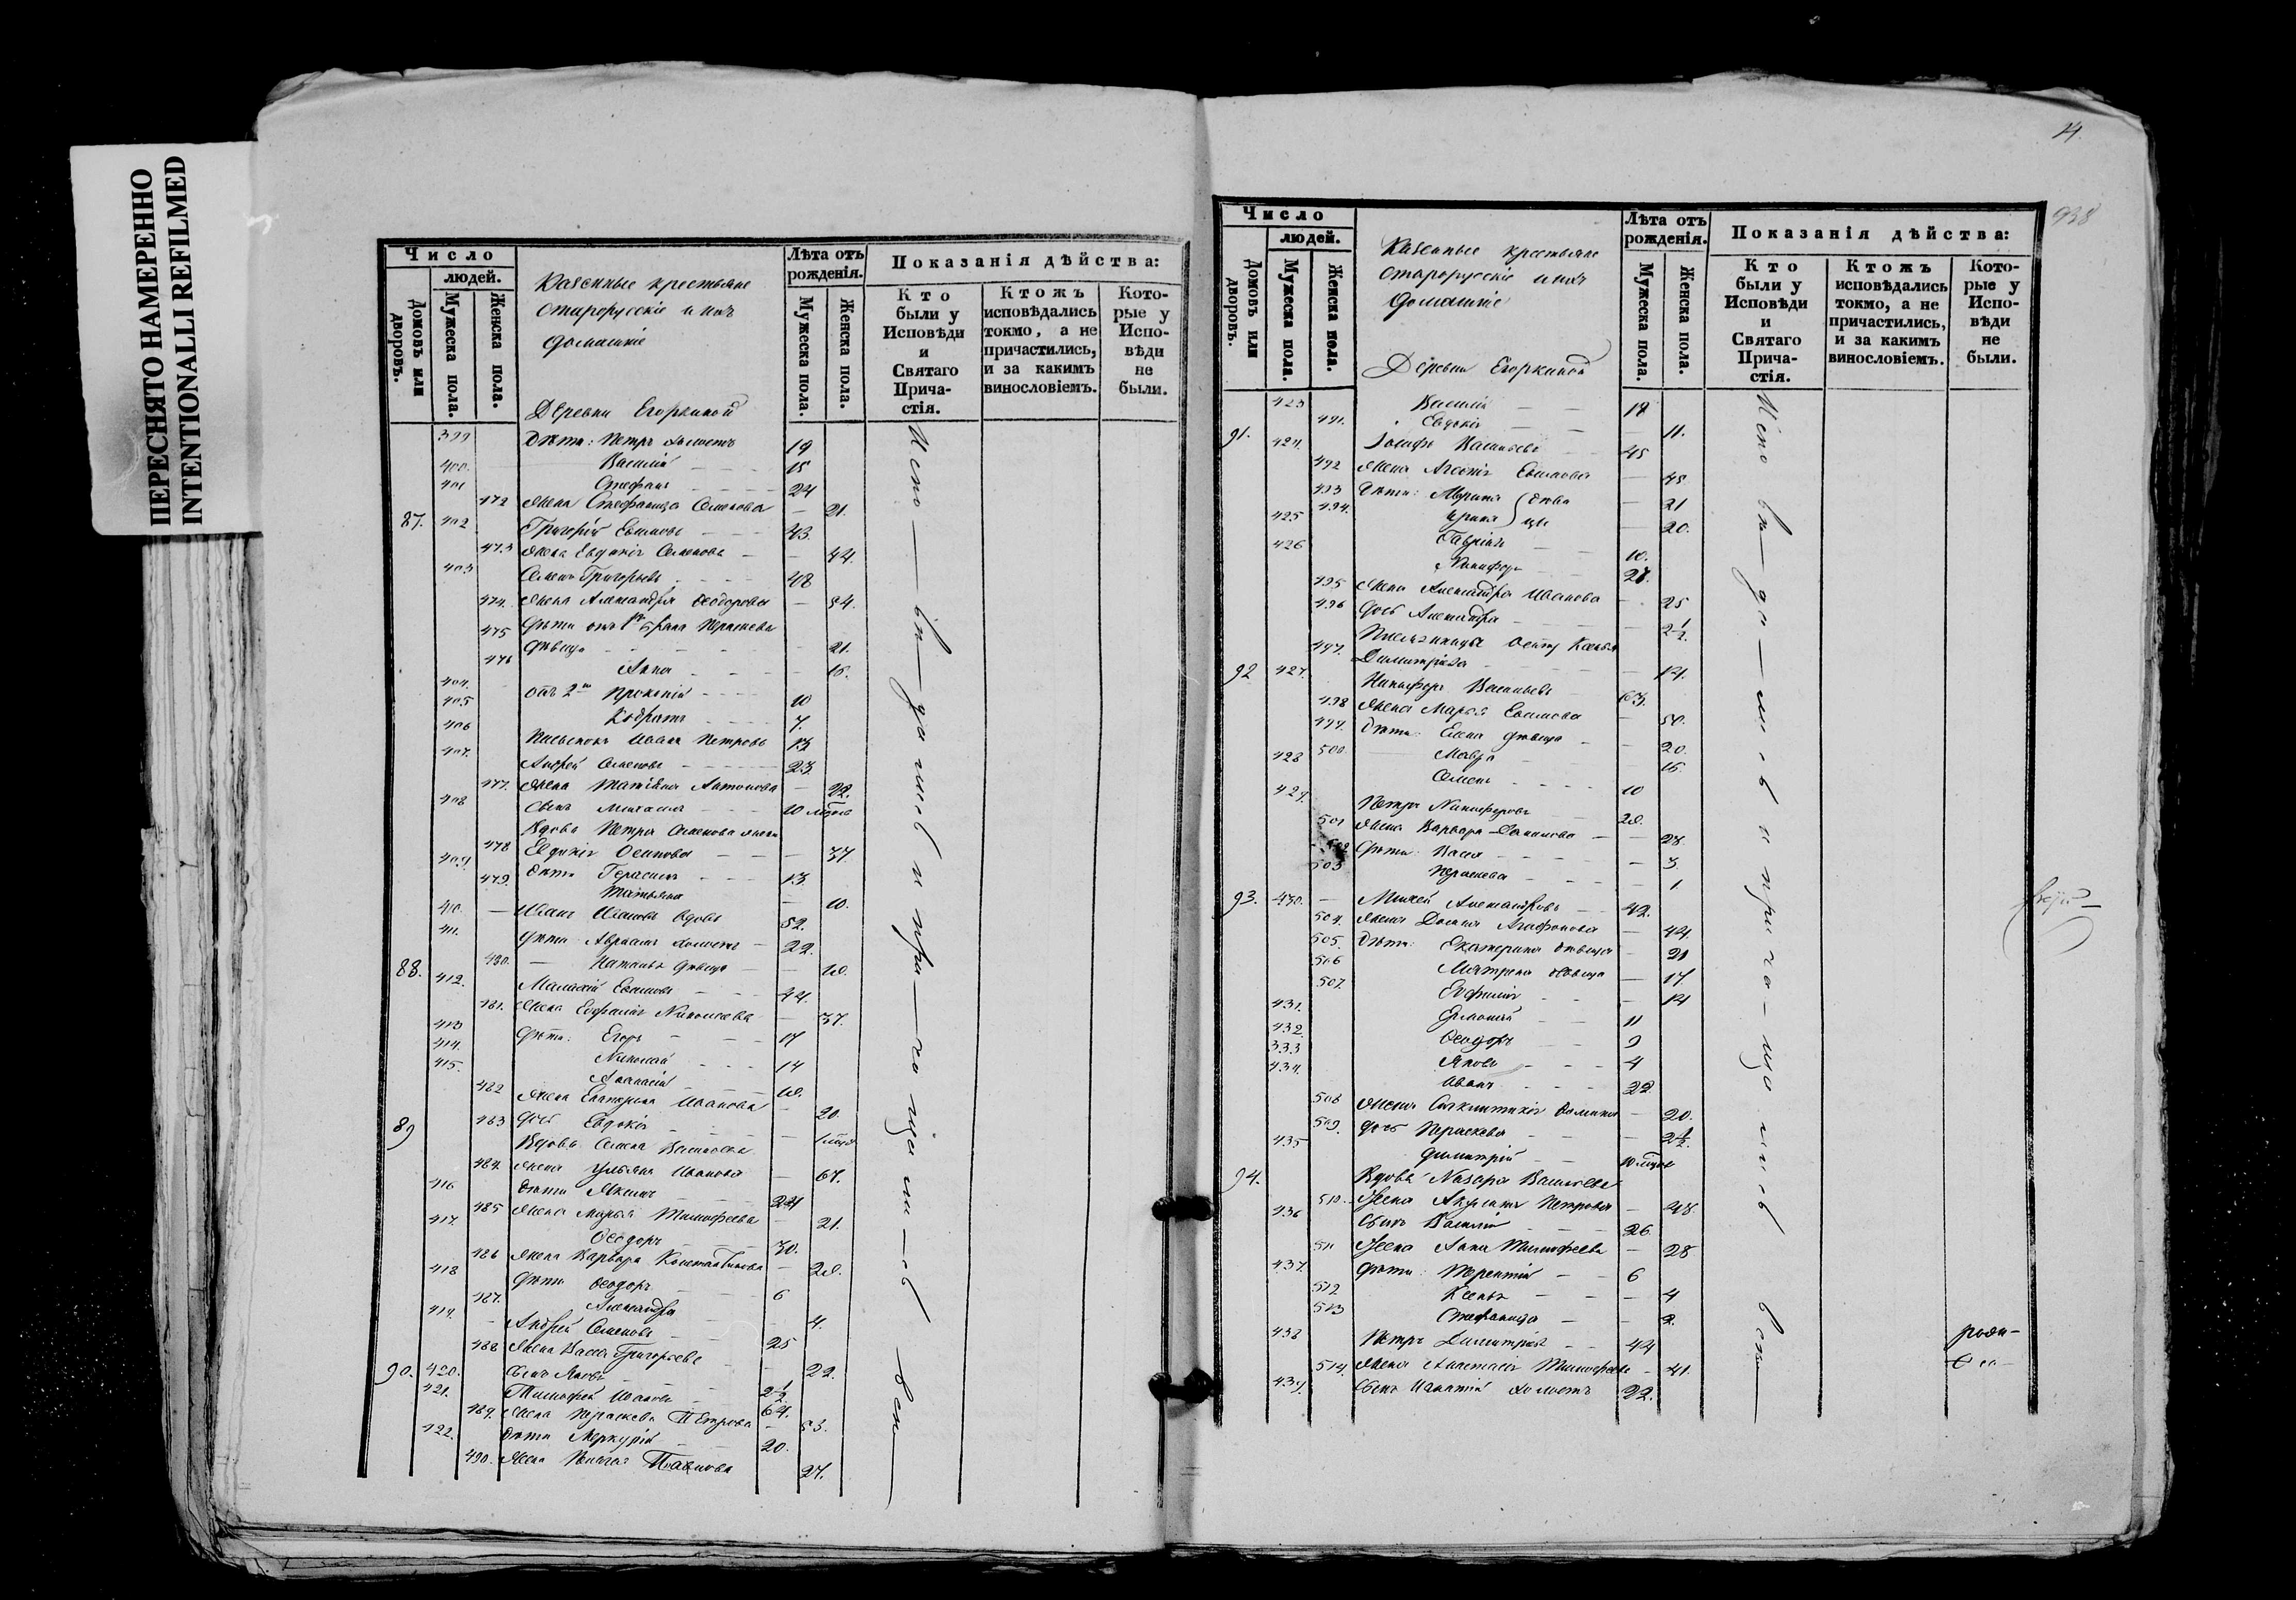 ПЕРЕСНЯТО НАМЕРЕННО
INTENTIONALLI REFILMED
Число
людей.
Домовъ или дворовъ.
Мужеска пола.
Женска пола.
Казенные крестьяне
старорусскіе и ихъ
домашніе
Деревни Егоркиной
Лѣта отъ рожденія.
Мужеска пола.
Женска пола.
Показанія дѣйства:
Кто были у Исповѣди и Святаго Причастія.
Ктожъ исповѣдались токмо, а не причастились, и за какимъ винословіемъ.
Которые у Исповѣди не были.
399 Дѣти: Петръ холостъ 19
400. Василій 15
401 Стефанъ 24
472 Жена Стефанида Семенова 21.
87. 402 Григорій Евѳимовъ 43.
473 Жена Евдокія Семенова 44.
403 Семенъ Григорьевъ 48
474. Жена Александра Ѳеодорова 54.
475 Дѣти отъ 1го брака Параскева
дѣвица 21.
476 Анна 16.
404. отъ 2го Прокопій 10
405 Кодратъ 7.
406 Иванъ Петровъ 13
407. Андрей Семеновъ 23
477. Жена Матѳіана Антонова 22.
408 Сынъ Михаилъ 10 мцовъ
Вдова Петра Семенова жена
478 Евдокія Осипова 37
409. Дѣти Герасимъ 13.
479. Татьяна 10.
410. Иванъ Ивановъ вдовъ 52.
411. Дѣти Авраамъ холостъ 22.
480. Наталья дѣвица
88. 412. Малахій Евѳимовъ 44.
481. Жена Евфимія Николаева 37.
413 Дѣти: Егоръ 17
414. Николай 14
415. Аѳанасій
482 Жена Екатерина Иванова 20.
483 дочь Евдокія
89 Вдова Семена Васильева
484. Жена Ульяна Иванова 67.
416 Дѣти Акимъ 24
485 Жена Марья Тимофеева 21.
417. Ѳеодоръ 30.
486 Жена Варвара Константинова 28.
418 Дѣти Ѳеодоръ 6
487. Александра 4.
419. Андрей Семеновъ 25
488 Жена Васса Григорьева 22.
90. 420. Сынъ Яковъ 2 1/2
421. Тимофей Ивановъ 64.
489. Жена Параскева Петрова 53.
422. Дѣти Меркурій 20.
490. Жена Пелагея Павлова 27.
Исповѣдались и причащались всѣ
14.
938
Число
людей.
Домовъ или дворовъ.
Мужеска пола.
Женска пола.
Казенные крестьяне
старорусскіе и ихъ
домашніе
Деревни Егоркиной
Лѣта отъ рожденія.
Мужеска пола.
Женска пола.
Показанія дѣйства:
Кто были у Исповѣди и Святаго Причастія.
Ктожъ исповѣдались токмо, а не причастились, и за какимъ винословіемъ.
Которые у Исповѣди не были.
423 Василій 18
491. Евдокія 11.
91. 424. Іосифъ Васильевъ 45
492 Жена Агафія Евѳимова 45
493 Дѣти: Марина } дѣви 21
494. Ирина } цы 20.
425 Гавріилъ 10.
426 Никифоръ 27.
495 Жена Александра Иванова 25
496 дочь Александра 2 1/2.
Ксенія
497. Димитріева 14.
92 427. Никифоръ Васильевъ 63.
498 Жена Марья Евѳимова 50.
499. Дѣти: Елена дѣвица 20.
500. Мавра 16.
428 Семенъ 10
429. Петръ Никифоровъ 28.
501 Жена Варвара 28
502 Дѣти: Васса 3.
503 Параскева 1
93. 430. Михей Александровъ 42.
504. Жена Домна Агафонова 44.
505. Дѣти: Екатерина дѣвица 21
506 Матрена дѣвица 17.
507. Евфимія 14
431. 11
432. Ѳеодоръ 9
333 Яковъ 4
434. Иванъ 22.
508 Жена Синклитикія 20.
509. дочь Параскева 2 1/2.
435 Димитрій 10 мцовъ
94. Вдова Назара Васильева
510. Жена Акулина Петрова 48.
436 Сынъ Василій 26.
511 Жена Анна Тимофеева 28
437. Дѣти: Терентій 6
512 Ксенья 4
513 Стефанида 2.
438 Петръ Димитріевъ 44
514. Жена Анастасія Тимофеева 41.
439. Сынъ Игнатій холостъ 22.
Исповѣдались и причащались всѣ